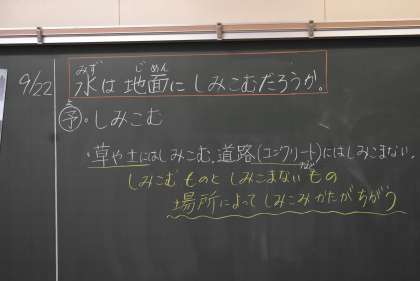 9/22
水は地面にしみこむだろうか。
みず じめん
予・しみこむ
・草や土にはしみこむ、道路(コンクリート)にはしみこまない。
しみこむものとしみこまないもの
場所によってしみこみかたがちがう